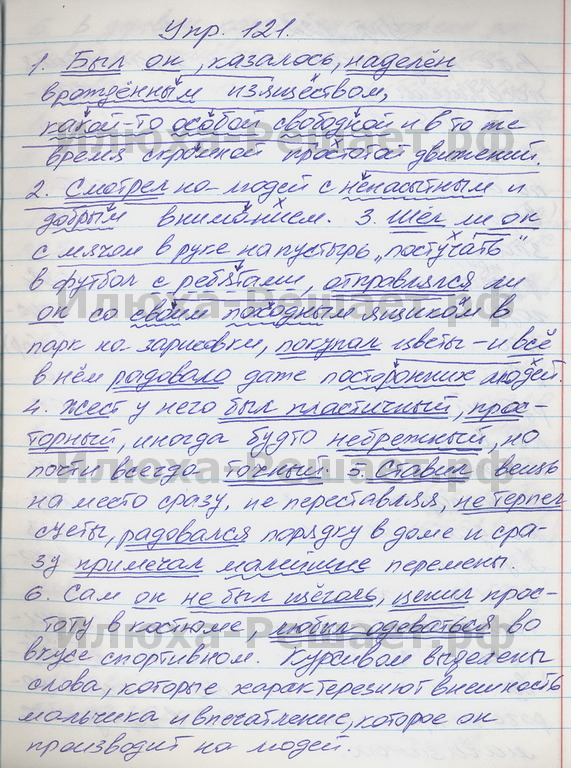 Упр. 121.
1. Был он, казалось, наделён
врождённым изяществом,
какой-то особой свободной и в то же
время скромной простотой движений.
2. Смотрел на людей с ненасытным и
добрым вниманием. 3. Шёл ли он
с мячом в руке на пустырь „постучать"
в футбол с ребятами, отправлялся ли
он со своим походным ящиком в
парк на зарисовки, покупал цветы – и всё
в нём радовало даже посторонних людей.
4. Жест у него был пластичный, прос-
торный, иногда будто небрежный, но
почти всегда точный. 5. Ставил вещь
на место сразу, не переставляя, не терпел
суеты, радовался порядку в доме и сра-
зу примечал малейшие перемены.
6. Сам он не был щёголь, ценил прос-
тоту в костюме, любил одеваться во
вкусе спортивном. Курсивом выделены
слова, которые характерезиют внешность
мальчика и впечатление, которое он
производит на людей.
Илюха-Решает.рф
Илюха-Решает.рф
Илюха-Решает.рф
Илюха-Решает.рф